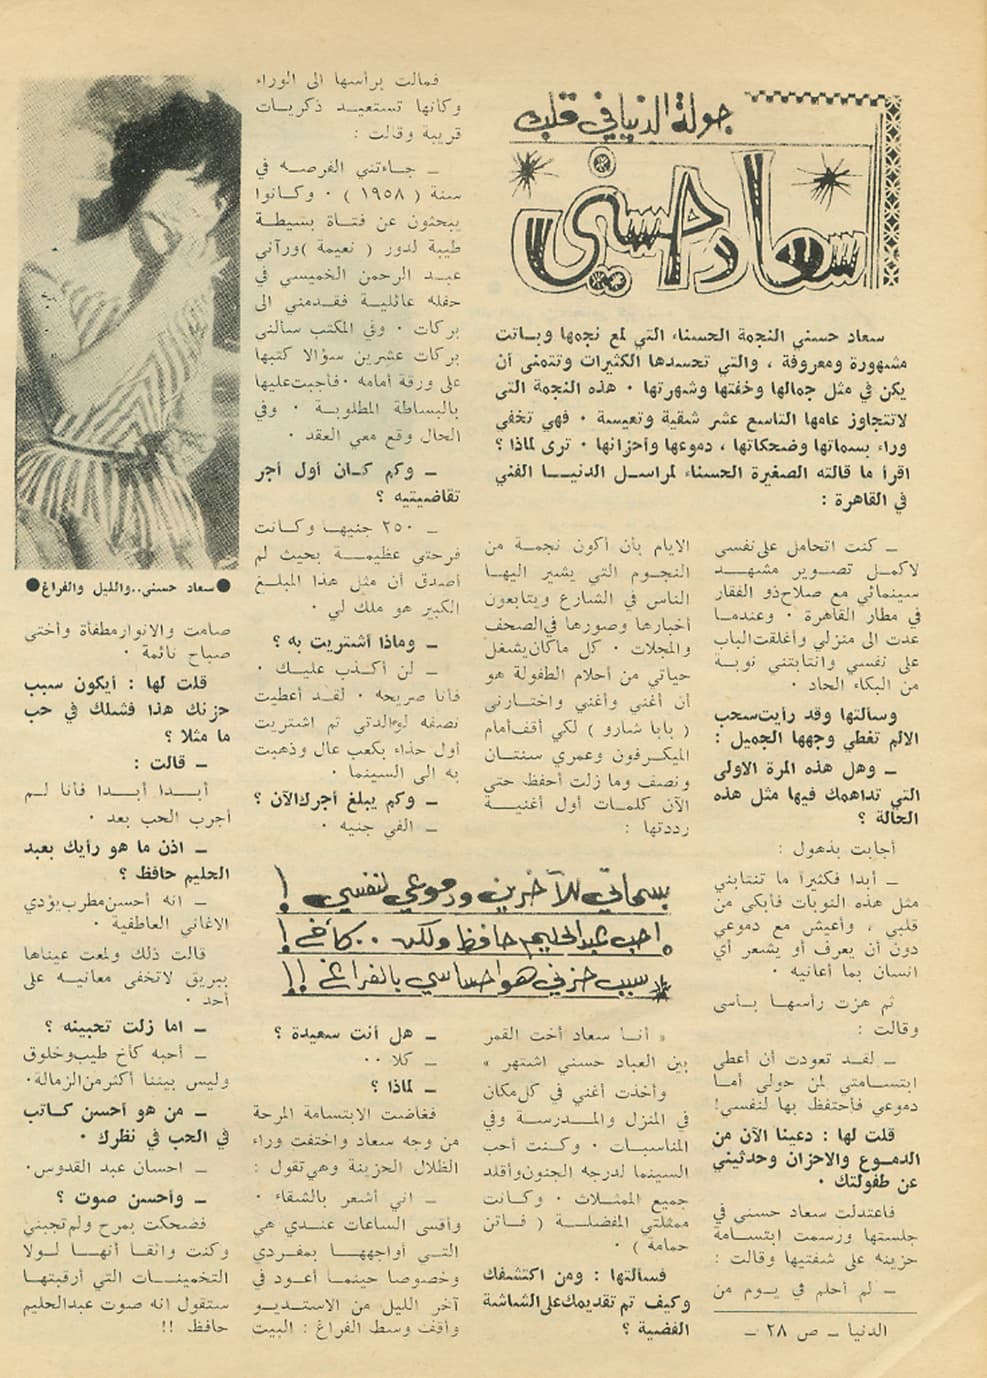 جولة الدنيا في قلب
سعاد حسني
سعاد حسني النجمة الحسناء التي لمع نجمها وبـاتت
مشهورة ومعروفة ، والتي تحسدها الكثيرات وتتمنى أن
يكن في مثل جمالها وخفتها وشهرتها ٠ هذه النجمة التي
لاتتجاوز عامها التاسع عشر شقية وتعيسة ٠ فهي تخفي
وراء بسماتها وضحكاتها ، دموعها وأحزانها ٠ ترى لماذا ؟
اقرأ ما قالته الصغيرة الحسناء لمراسل الدنيـا الفني
في القاهرة :
ـ كنت اتحامل على نفسي
لاكمل تصوير مشهد
سينمائي مع صلاح ذو الفقار
في مطار القاهرة ٠ وعندما
عدت الى منزلي وأغلقت الباب
على نفسي وانتابتني نوبة
من البكاء الحاد ٠
وسألتها وقد رأيت سحب
الالم تغطي وجهها الجميل :
ـ وهل هذه المرة الاولى
التي تداهمك فيها مثل هذه
الحالة ؟
أجابت بذهول :
ـ أبدا فكثيرا ما تنتابني
مثل هذه النوبات فأبكي من
قلبي ، وأعيش مع دموعي
دون أن يعرف أو يشعر أي
انسان بما أعانيه ٠
ثم هزت رأسها بأسى
وقالت :
ـ لقد تعودت أن أعطي
ابتسامتي لمن حولي أما
دموعي فأحتفظ بها لنفسي!
قلت لها : دعينا الآن من
الدموع والاحزان وحدثيني
عن طفولتك ٠
فاعتدلت سعاد حسني في
جلستها ورسمت ابتسامة
حزينه على شفتيها وقالت :
ـ لم أحلم في يوم من
الايام بأن أكون نجمة من
النجوم التي يشير اليها
الناس في الشارع ويتابعون
أخبارها وصورها في الصحف
والمجلات ٠ كل ماكان يشغل
حياتي من أحلام الطفولة هو
أن أغني وأغني واختارني
( بابا شارو ) لكي أقف أمام
الميكرفون وعمري سنتان
ونصف وما زلت أحفظ حتى
الآن كلمات أول أغنية
رددتها :
بسماتي للآخرين ودموعي لنفسي !
احب عبد الحليم حافظ ولكن ٠٠ كأخ !
سبب حزني هو احساسي بالفراغ !!
« أنا سعاد أخت القمر
بين العباد حسني اشتهر »
وأخذت أغني في كل مكان
في المنزل والمدرسة وفي
المناسبات ٠ وكنت أحب
السينما لدرجه الجنون وأقلد
جميع الممثلات ٠ وكانت
ممثلتي المفضلة ( فاتن
حمامة ) ٠
فسألتها : ومن اكتشفك
وكيف تم تقديمك على الشاشة
الفضية ؟
فمالت برأسها الى الوراء
وكأنها تستعيد ذكريات
قريبة وقالت :
ـ جاءتني الفرصه في
سنة ( ١٩٥٨ ) ٠ وكانوا
يبحثون عن فتاة بسيطة
طيبة لدور ( نعيمة ) ورآني
عبد الرحمن الخميسي في
حفله عائلية فقدمني الى
بركات ٠ وفي المكتب سألني
بركات عشرين سؤالا كتبها
على ورقة أمامه ٠ فأجبت عليها
بالبساطة المطلوبة ٠ وفي
الحال وقع معي العقد ٠
ـ وكم كان أول أجر
تقاضيتيه ؟
ـ ٢٥٠ جنيها وكانت
فرحتي عظيمة بحيث لم
أصدق أن مثل هذا المبلغ
الكبير هو ملك لي ٠
ـ وماذا أشتريت به ؟
ـ لن أكذب عليك ٠
فأنا صريحه ٠ لقد أعطيت
نصفه لوالدتي ثم اشتريت
أول حذاء بكعب عال وذهبت
به الى السينما ٠
ـ وكم يبلغ أجرك الآن ؟
ـ الفي جنيه ٠
ـ هل أنت سعيدة ؟
ـ كلا ٠٠
ـ لماذا ؟
فغاضت الابتسامة المرحة
من وجه سعاد واختفت وراء
الظلال الحزينة وهي تقول :
ـ اني أشعر بالشقاء ٠
وأقسى الساعات عندي هي
التي أواجهها بمفردي
وخصوصا حينما أعود في
آخر الليل من الاستديو
وأقف وسط الفراغ : البيت
●سعاد حسني..والليل والفراغ●
صامت والانوار مطفأة وأختي
صباح نائمة ٠
قلت لها : أيكون سبب
حزنك هذا فشلك في حب
ما مثلا ؟
ـ قالت :
أبدا أبدا فأنا لم
أجرب الحب بعد ٠
ـ اذن ما هو رأيك بعبد
الحليم حافظ ؟
ـ انه أحسن مطرب يؤدي
الاغاني العاطفية ٠
قالت ذلك ولمعت عيناها
ببريق لاتخفى معانيه على
أحد ٠
ـ اما زلت تحبينه ؟
ـ أحبه كأخ طيب وخلوق
وليس بيننا أكثر من الزمالة٠
ـ من هو أحسن كاتب
في الحب في نظرك ٠
ـ احسان عبد القدوس٠
ـ وأحسن صوت ؟
فضحكت بمرح ولم تجبني
وكنت واثقا أنها لولا
التخمينات التي أرقبتها
ستقول انه صوت عبد الحليم
حافظ !!
الدنيا ـ ص ٢٨ ـ